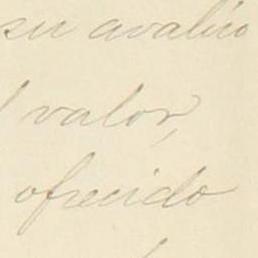 su avalúo
valor,
ofrecido